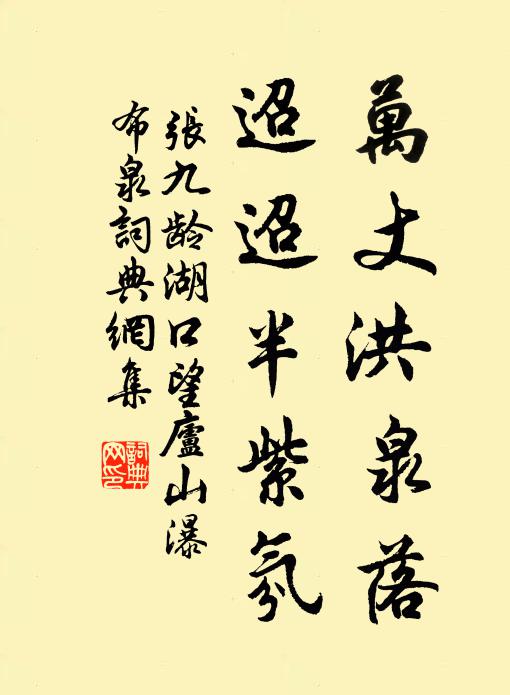 萬丈洪泉落
迢迢半紫氛
張九齡湖口望廬山瀑
布泉詞典網集
詞典
网印